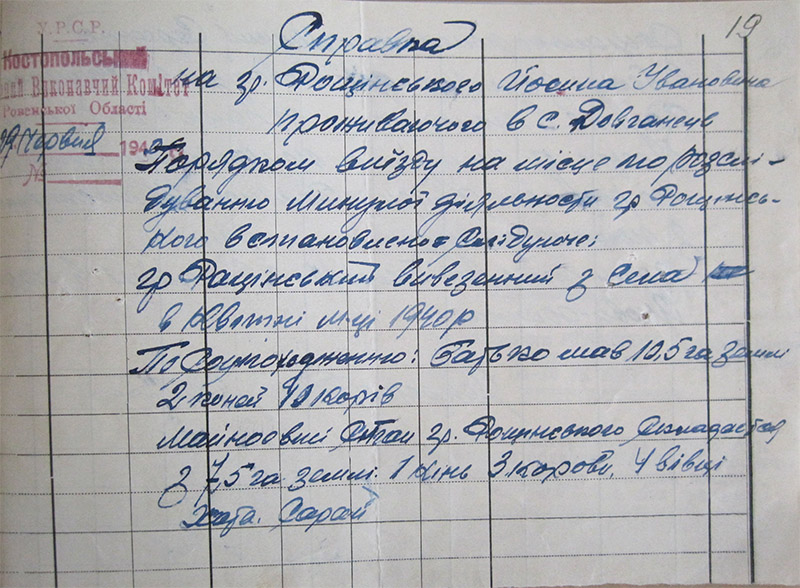 19
У.Р.С.Р.
Костопольський
Виконавчий Комітет
Ровенської Області
19 Червня 194
№
Справка
на гр. Рощінського Йосипа Івановича
проживаючого в с. Довганець
Порядком виїзду на місце по розслі-
дуванню минулої діяльности гр Рощінсь-
кого встановлено слідуюче:
гр Рощінський вивезенний з села
в квітні м-ці 1940р
По соцпоходженню: Батько мав 12,5 га землі
2 коней корів
майновий стан гр. Рощінського складается
з 7,5 га землі 1 кінь 3 корови, 4 вівці
Хата. Сарай